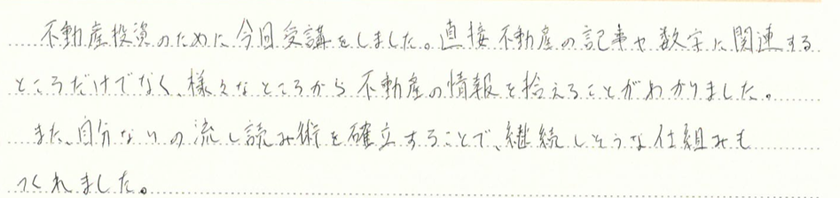 不動産投資のために今回受講をしました。直接不動産の記事や数字に関連する
ところだけでなく、様々なところから不動産の情報を拾えることがわかりました。
また、自分なりの流し読み術を確立することで、継続しそうな仕組みも
つくれました。